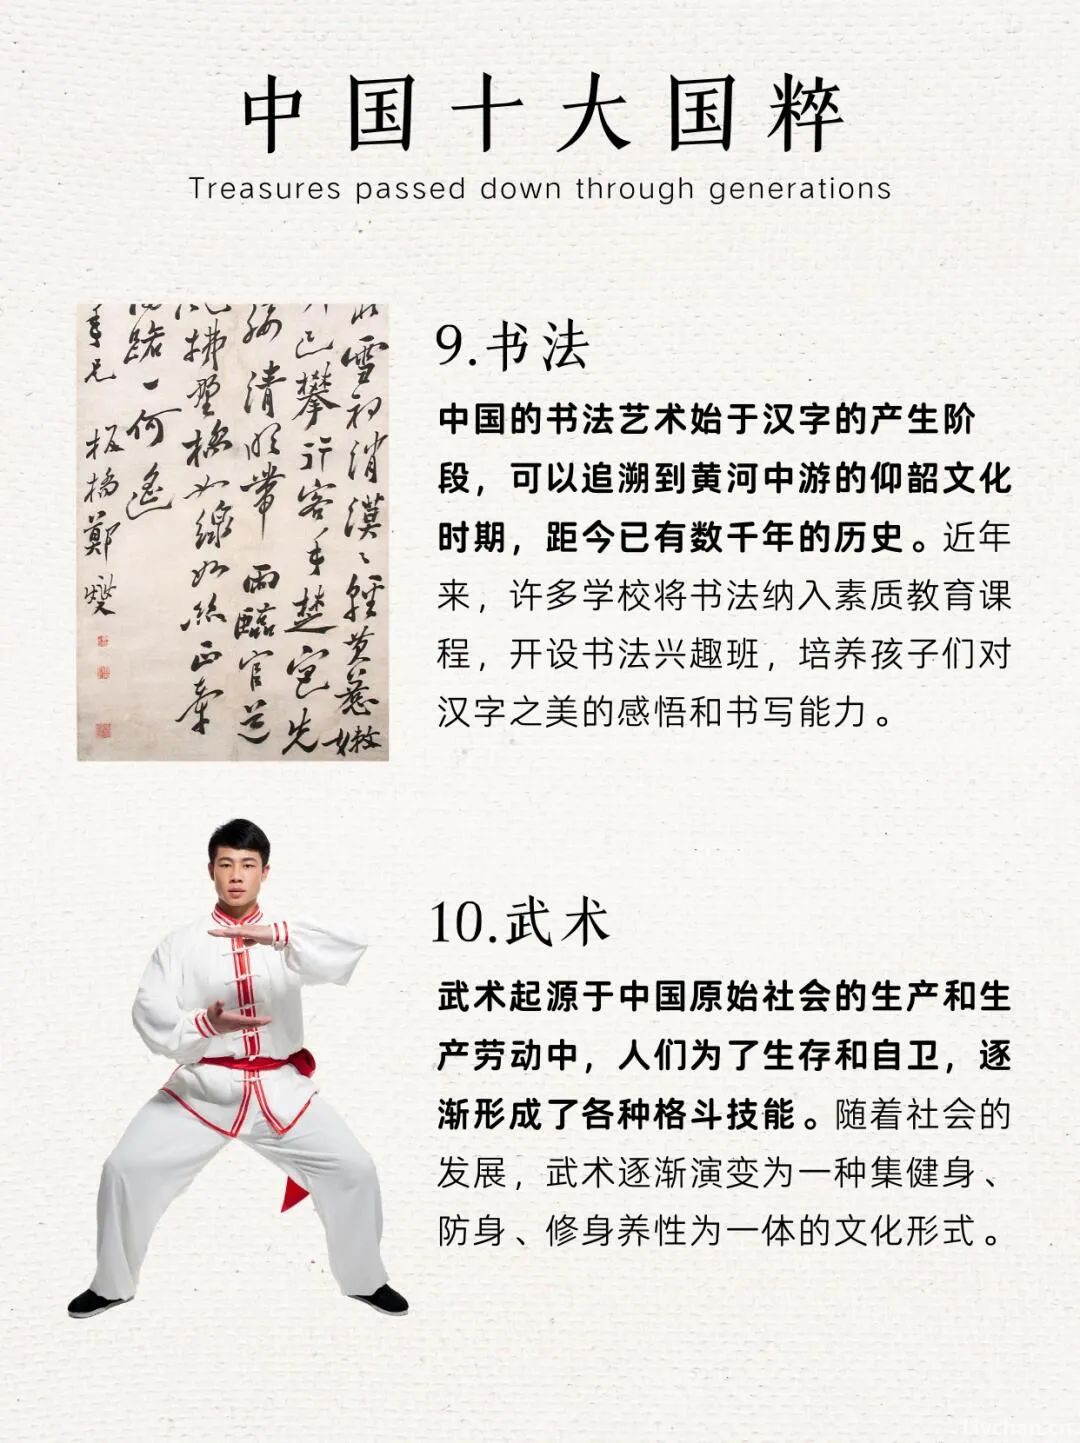 中国十大国粹
Treasures passed down through generations
雪初消漠〻輕黄惹嫩
已攀行客手楚宮先
清明帶雨臨官道
拂野橋如線如絲正牽
一何遙
年兄
板橋鄭燮
9.书法
中国的书法艺术始于汉字的产生阶
段，可以追溯到黄河中游的仰韶文化
时期，距今已有数千年的历史。近年
来，许多学校将书法纳入素质教育课
程，开设书法兴趣班，培养孩子们对
汉字之美的感悟和书写能力。
10.武术
武术起源于中国原始社会的生产和生
产劳动中，人们为了生存和自卫，逐
渐形成了各种格斗技能。随着社会的
发展，武术逐渐演变为一种集健身、
防身、修身养性为一体的文化形式。